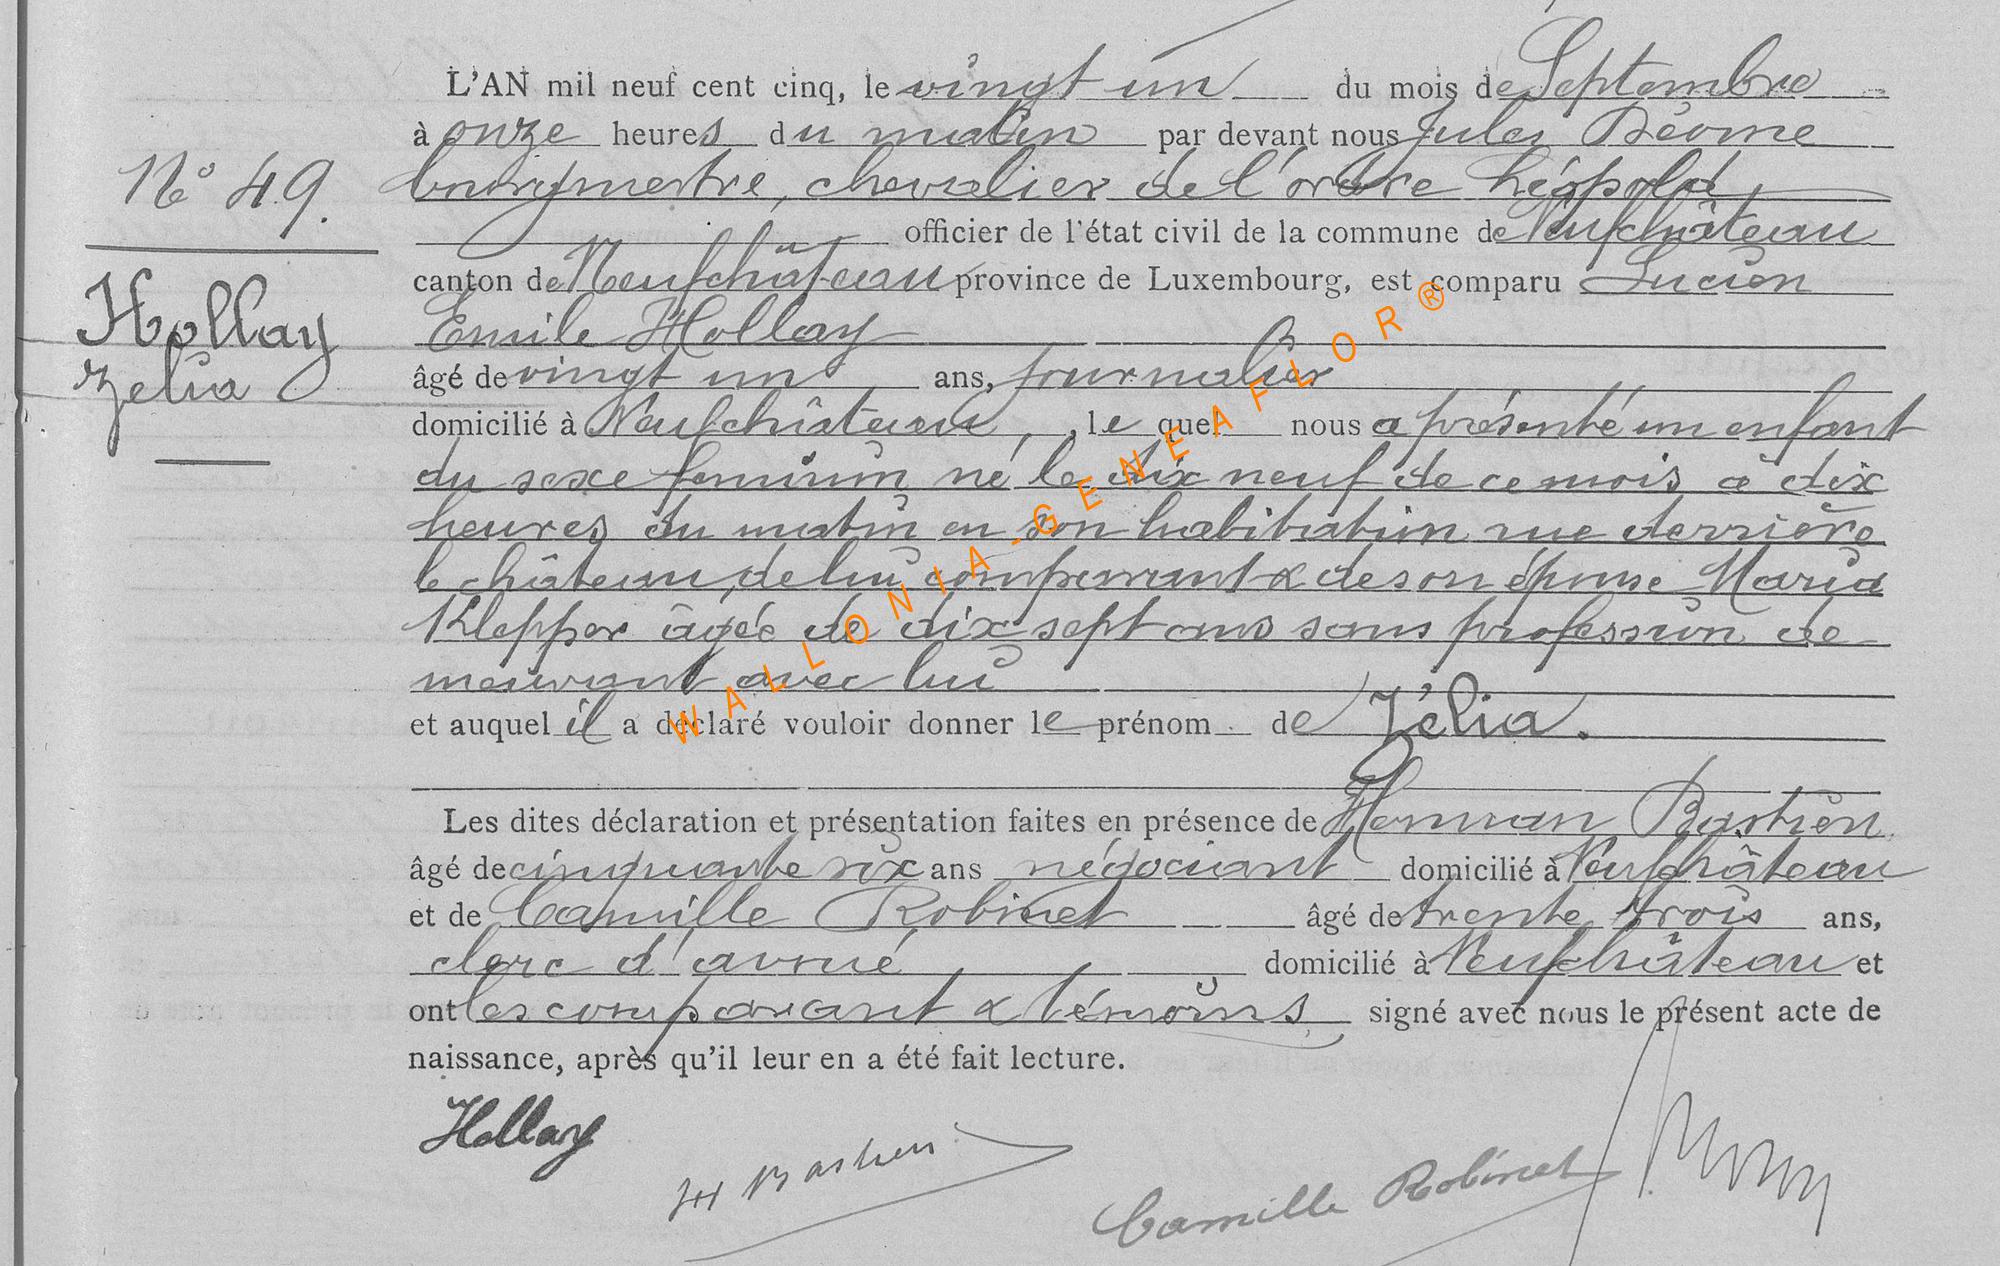 L'AN mil neuf cent cinq, le vingt un du mois de Septembre
à onze heures du matin par devant nous Jules
N° 49.
bourgmestre, chevalier de l'ordre Léopold
officier de l'état civil de la commune de Neufchâteau
canton de Neufchâteau province de Luxembourg, est comparu Lucien
Hollay
Zelia
Emile Hollay
âgé de vingt un ans, journalier
domicilié à Neufchâteau, le quel nous a présenté un enfant
du sexe feminin né le dix neuf de ce mois à dix
heures du matin en son habitation rue derrière
le château, de lui comparant & de son épouse Maria
Klepper âgée de dix sept ans sans profession de
meurant avec lui
et auquel il a déclaré vouloir donner le prénom de Zélia.
Les dites déclaration et présentation faites en présence de Herman Bastien
âgé de cinquante six ans négociant domicilié à Neufchâteau
et de Camille Robinet âgé de trente trois ans,
clerc d'avoué domicilié à Neufchâteau et
ont les comparant & témoins signé avec nous le présent acte de
naissance, après qu'il leur en a été fait lecture.
Hollay
H Bastien
Camille Robinet
WALLONIA-GENEAFLOR®